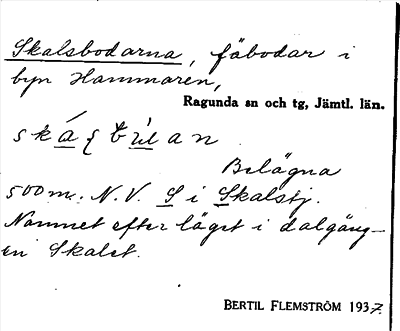 Skalsbodarna, fäbodar i
byn Hammaren,
Ragunda sn och tg, Jämtl. län.
Belägna
500 m. N.V. S i Skalstj.
Namnet efter läget i dalgång-
en Skalet.
BERTIL FLEMSTRÖM 1937.